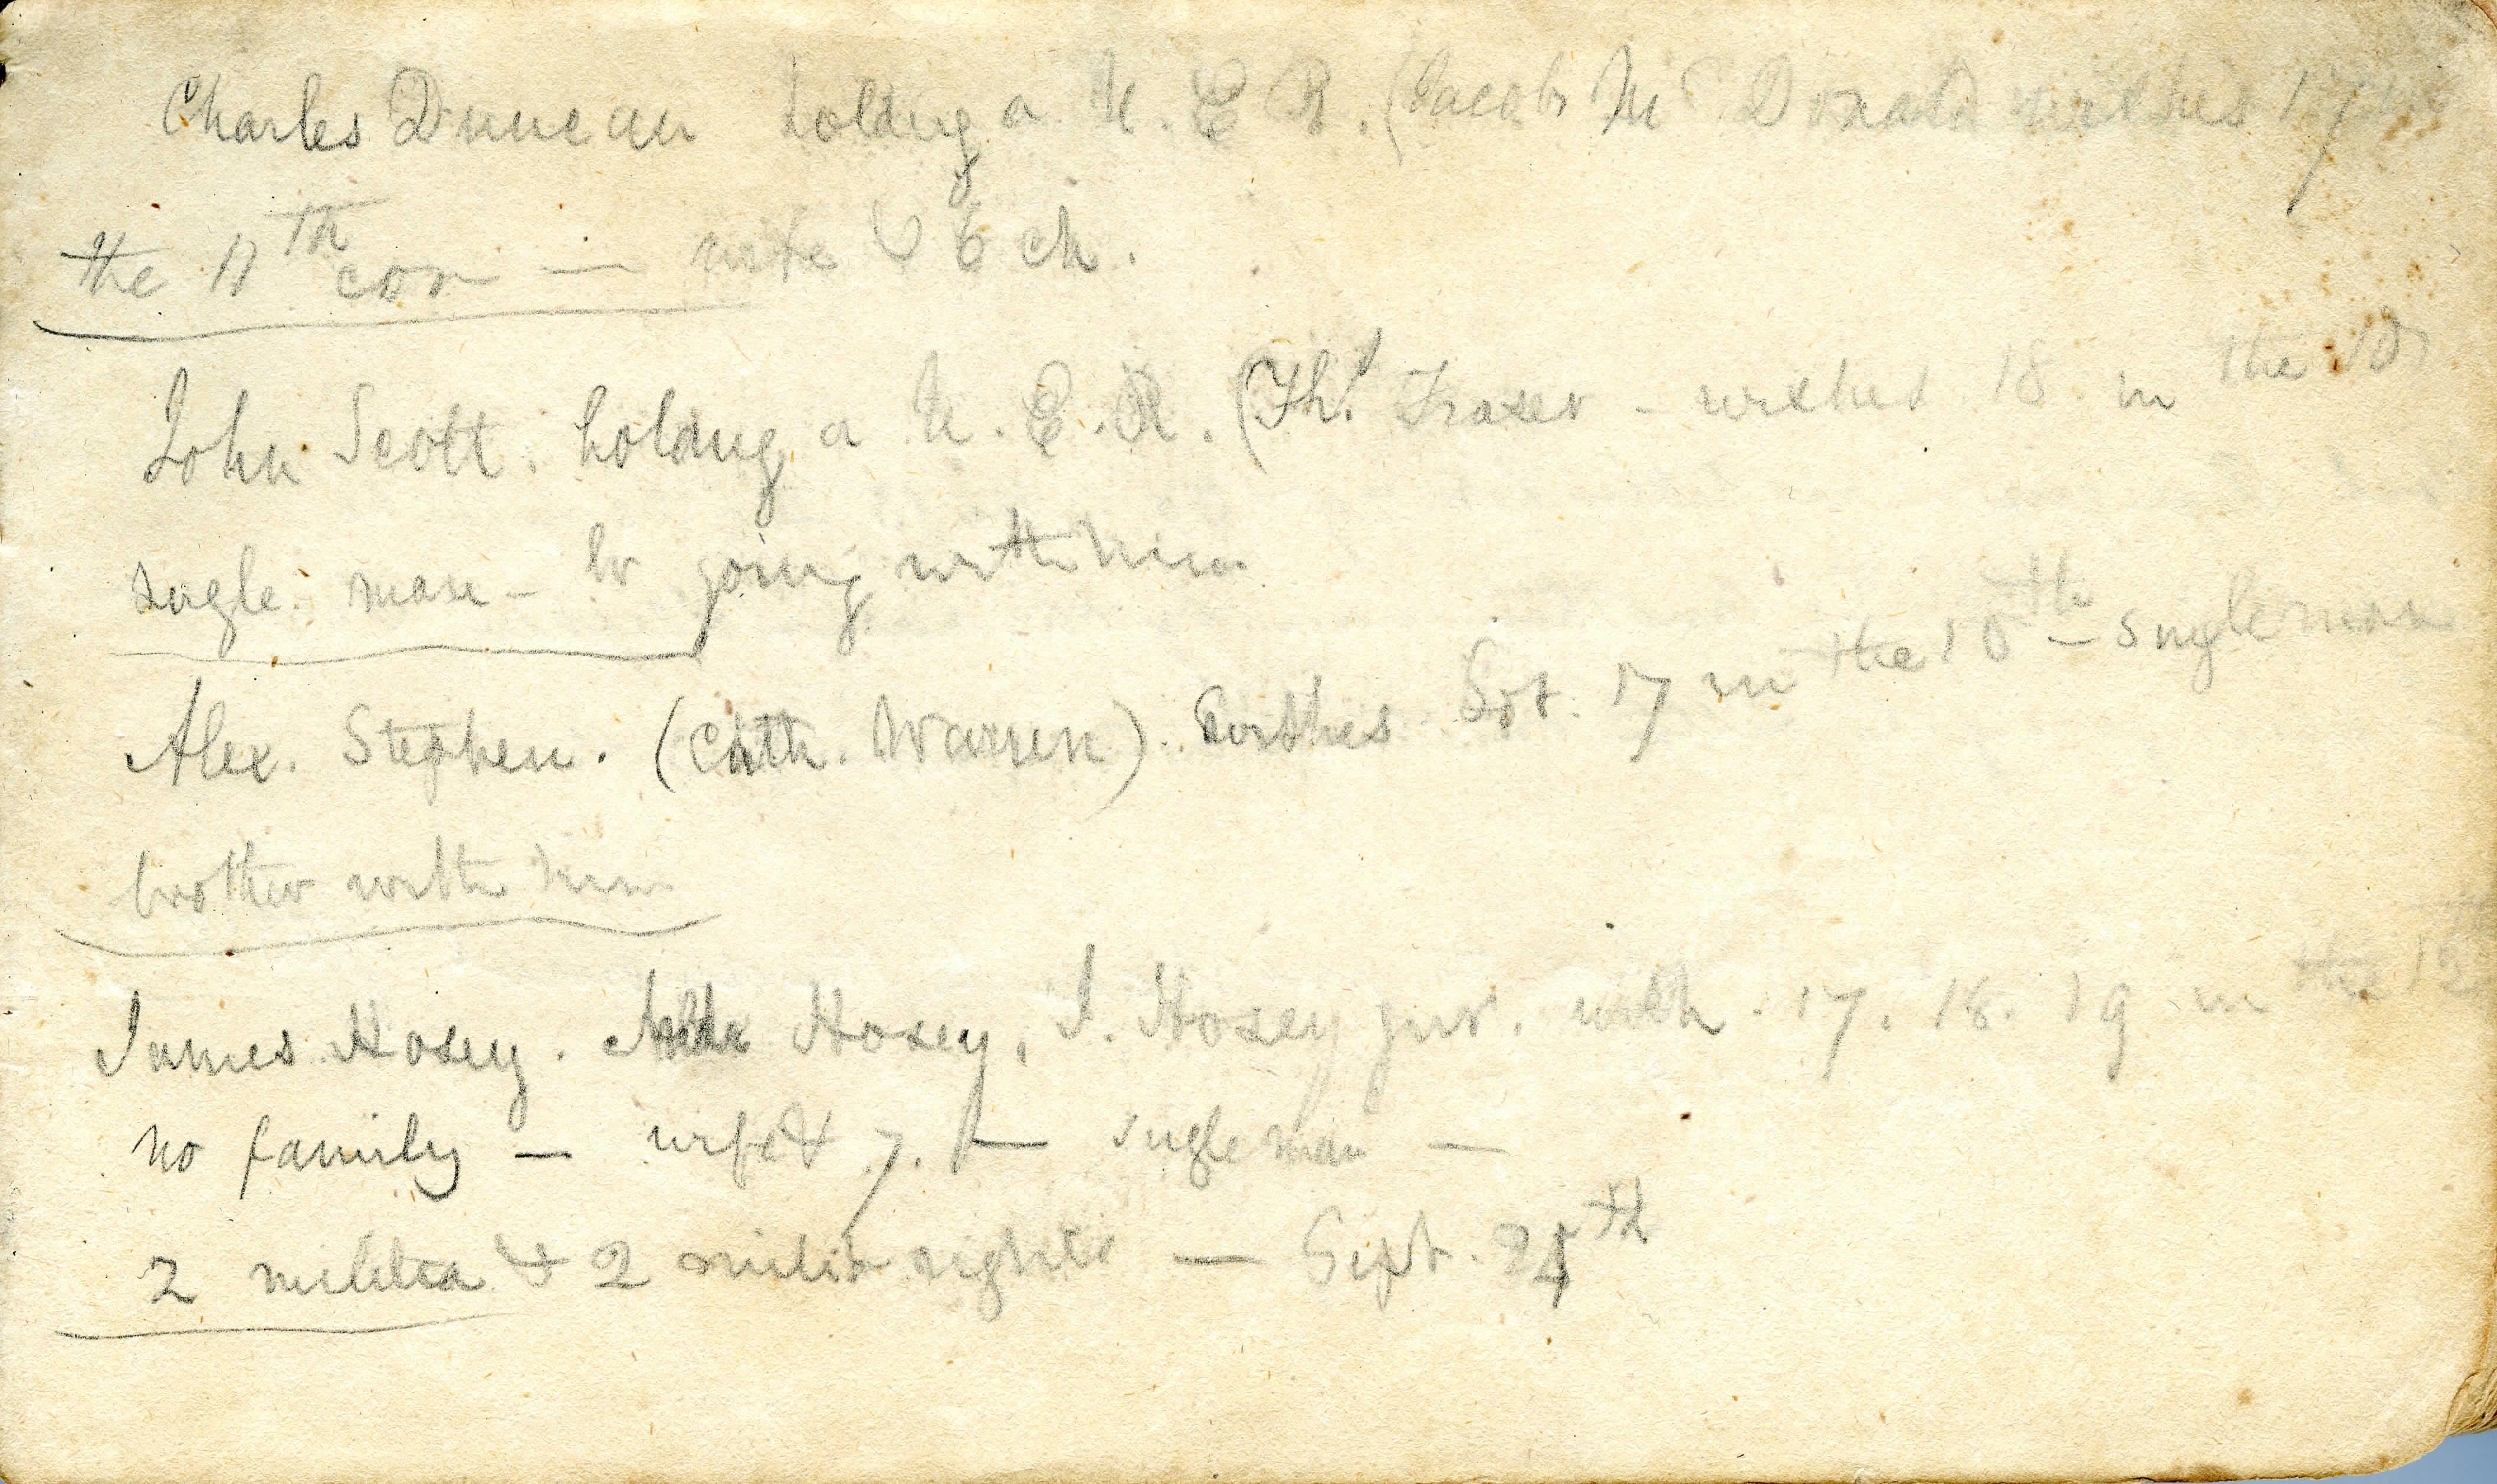 Charles Duncan holding a U. E. R. (Jacob Mc Donald wishes 17
the 11th con — wife & 6 ch.
John Scott. holding a U. E. R. (Th. Fraser - wishes 18 in the
single man - br going with him
Alex. Stephen. (Cath. Warren). wishes Lot. 17 in the 10th - single man
brother with him
James Hosey. Hosey, J. Hosey junr. with. 17. 18. 19 in the 12
no family — wife & 7. — single man —
2 militia & 2 rights — Sept. 24th